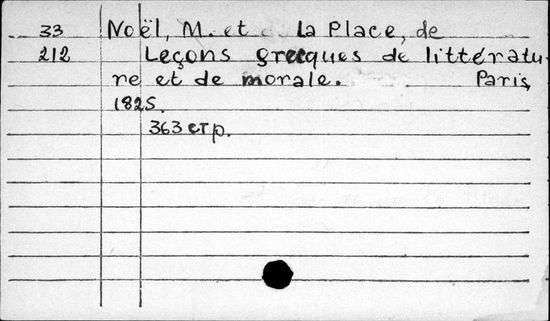 33 Noël, M. et La Place, de
212 Leçons grecques de littératu-
re et de morale. Paris,
1825.
363 стр.